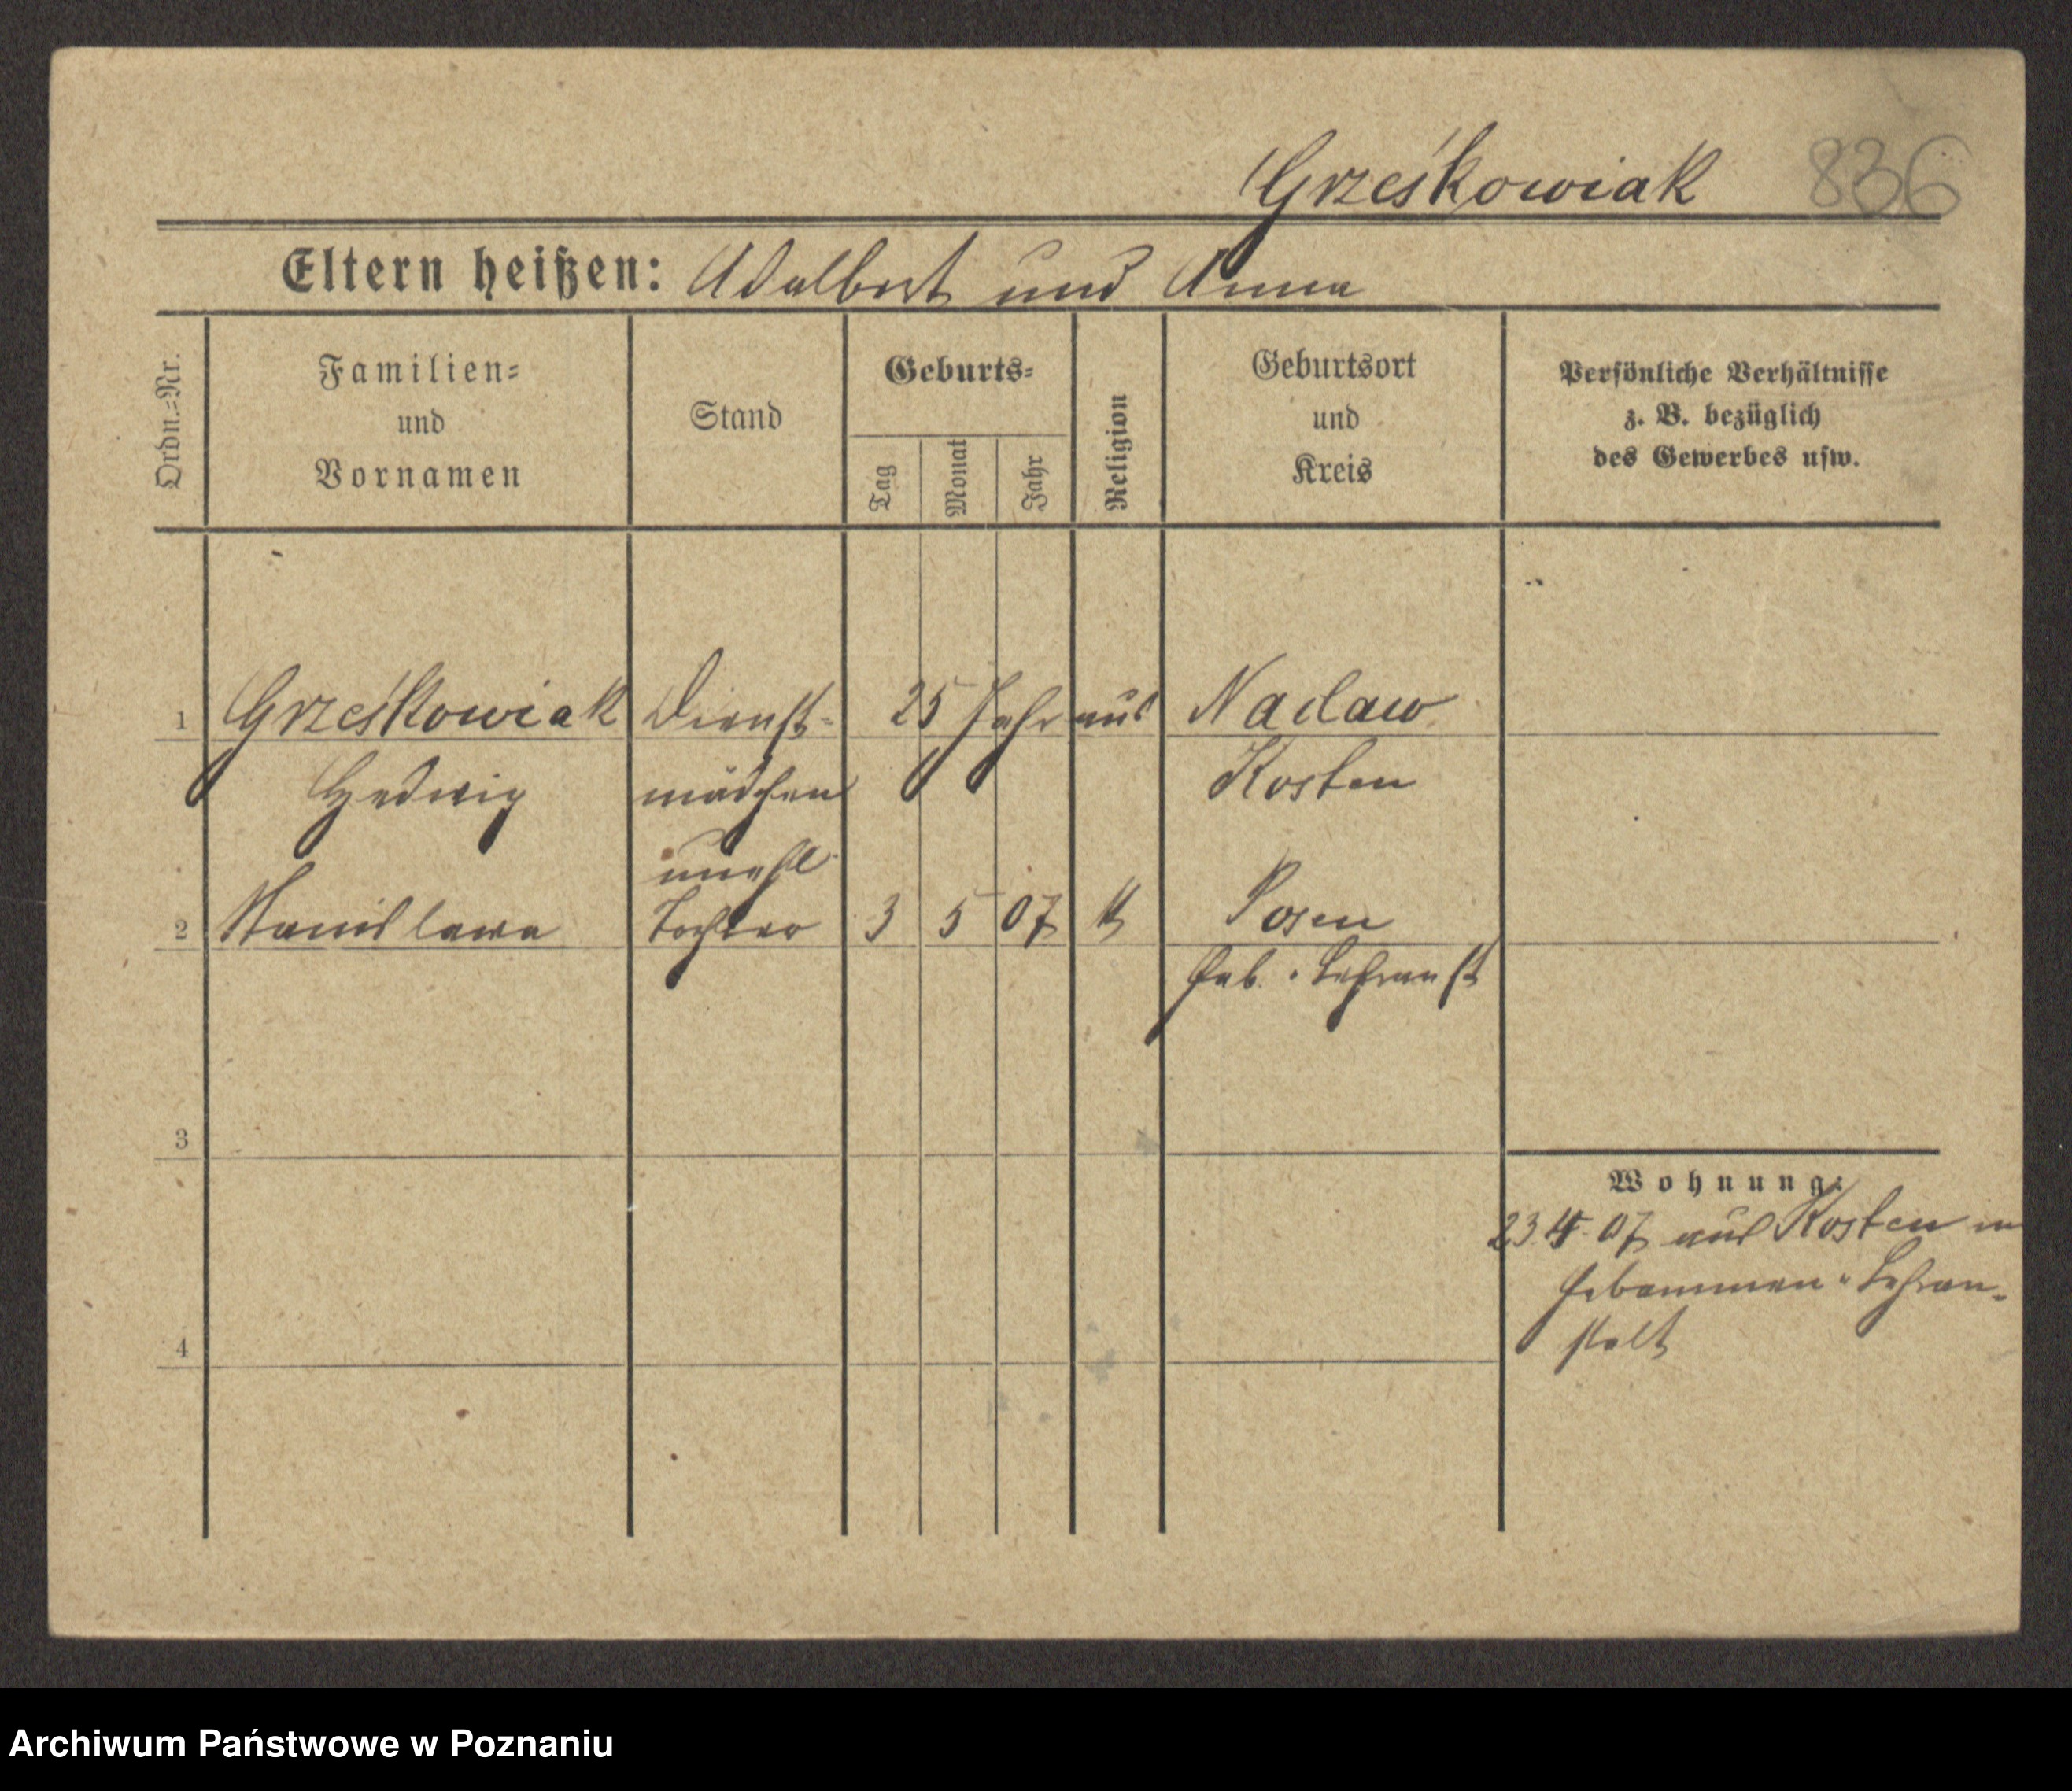 Grześkowiak 836
Eltern heißen: Adalbert und Anna
Ordn.=Nr.
Familien=
und
Vornamen
Stand
Geburts=
Tag
Monat
Jahr
Religion
Geburtsort
und
Kreis
Persönliche Verhältnisse
z. B. bezüglich
des Gewerbes usw.
1 Grześkowiak Dienst= 25 Jahr aus Naclaw
Hedwig mädchen Kosten
unehl.
2 Stanislawa Tochter 3 5 07 K Posen
Heb. Lehranst
3
Wohnung:
23 4 07 aus Kosten in
Hebammen=Lehran=
stalt
4
Archiwum Państwowe w Poznaniu